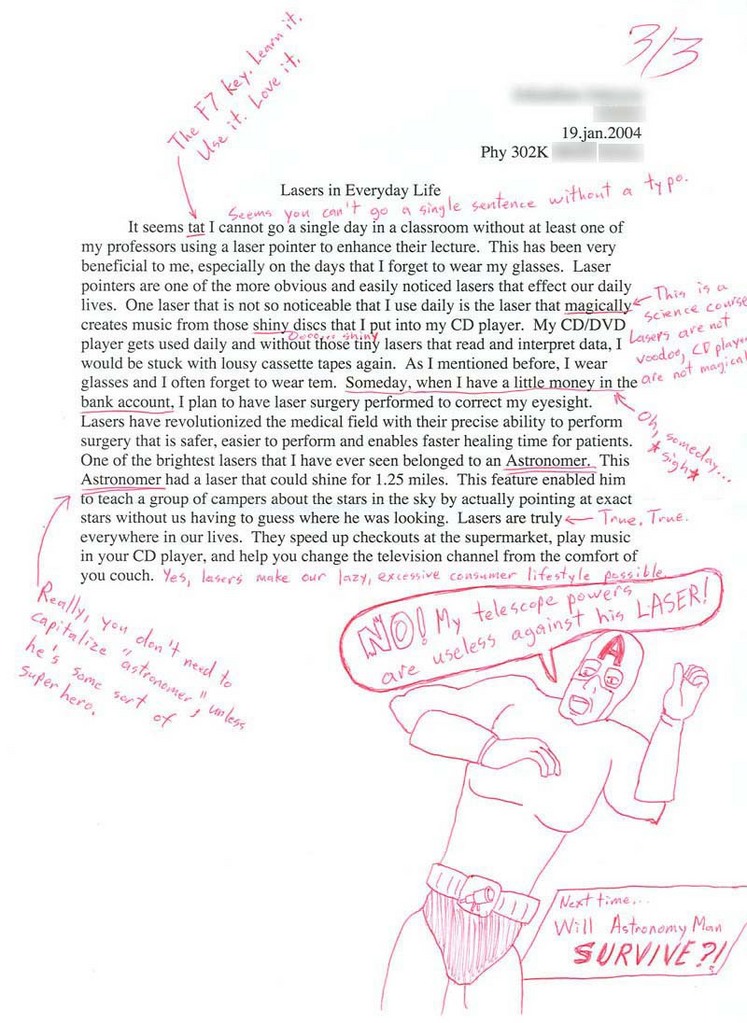 The F7 key. Learn it.
Use it. Love it.
3/3
19.jan.2004
Phy 302K
Lasers in Everyday Life
Seems you can't go a single sentence without a typo.
It seems tat I cannot go a single day in a classroom without at least one of
my professors using a laser pointer to enhance their lecture. This has been very
beneficial to me, especially on the days that I forget to wear my glasses. Laser
pointers are one of the more obvious and easily noticed lasers that effect our daily
lives. One laser that is not so noticeable that I use daily is the laser that magically
creates music from those shiny discs that I put into my CD player. My CD/DVD
Oooo... shiny
player gets used daily and without those tiny lasers that read and interpret data, I
would be stuck with lousy cassette tapes again. As I mentioned before, I wear
glasses and I often forget to wear tem. Someday, when I have a little money in the
bank account, I plan to have laser surgery performed to correct my eyesight.
Lasers have revolutionized the medical field with their precise ability to perform
surgery that is safer, easier to perform and enables faster healing time for patients.
One of the brightest lasers that I have ever seen belonged to an Astronomer. This
Astronomer had a laser that could shine for 1.25 miles. This feature enabled him
to teach a group of campers about the stars in the sky by actually pointing at exact
stars without us having to guess where he was looking. Lasers are truly
everywhere in our lives. They speed up checkouts at the supermarket, play music
in your CD player, and help you change the television channel from the comfort of
you couch. Yes, lasers make our lazy, excessive consumer lifestyle possible
This is a
science course
Lasers are not
voodoo, CD player
are not magical
Oh,
someday...
*sigh*
True, True.
Really, you don't need to
capitalize "astronomer," unless
he's some sort of
superhero.
NO! My telescope powers
are useless against his LASER!
A
Next time...
Will Astronomy Man
SURVIVE?!